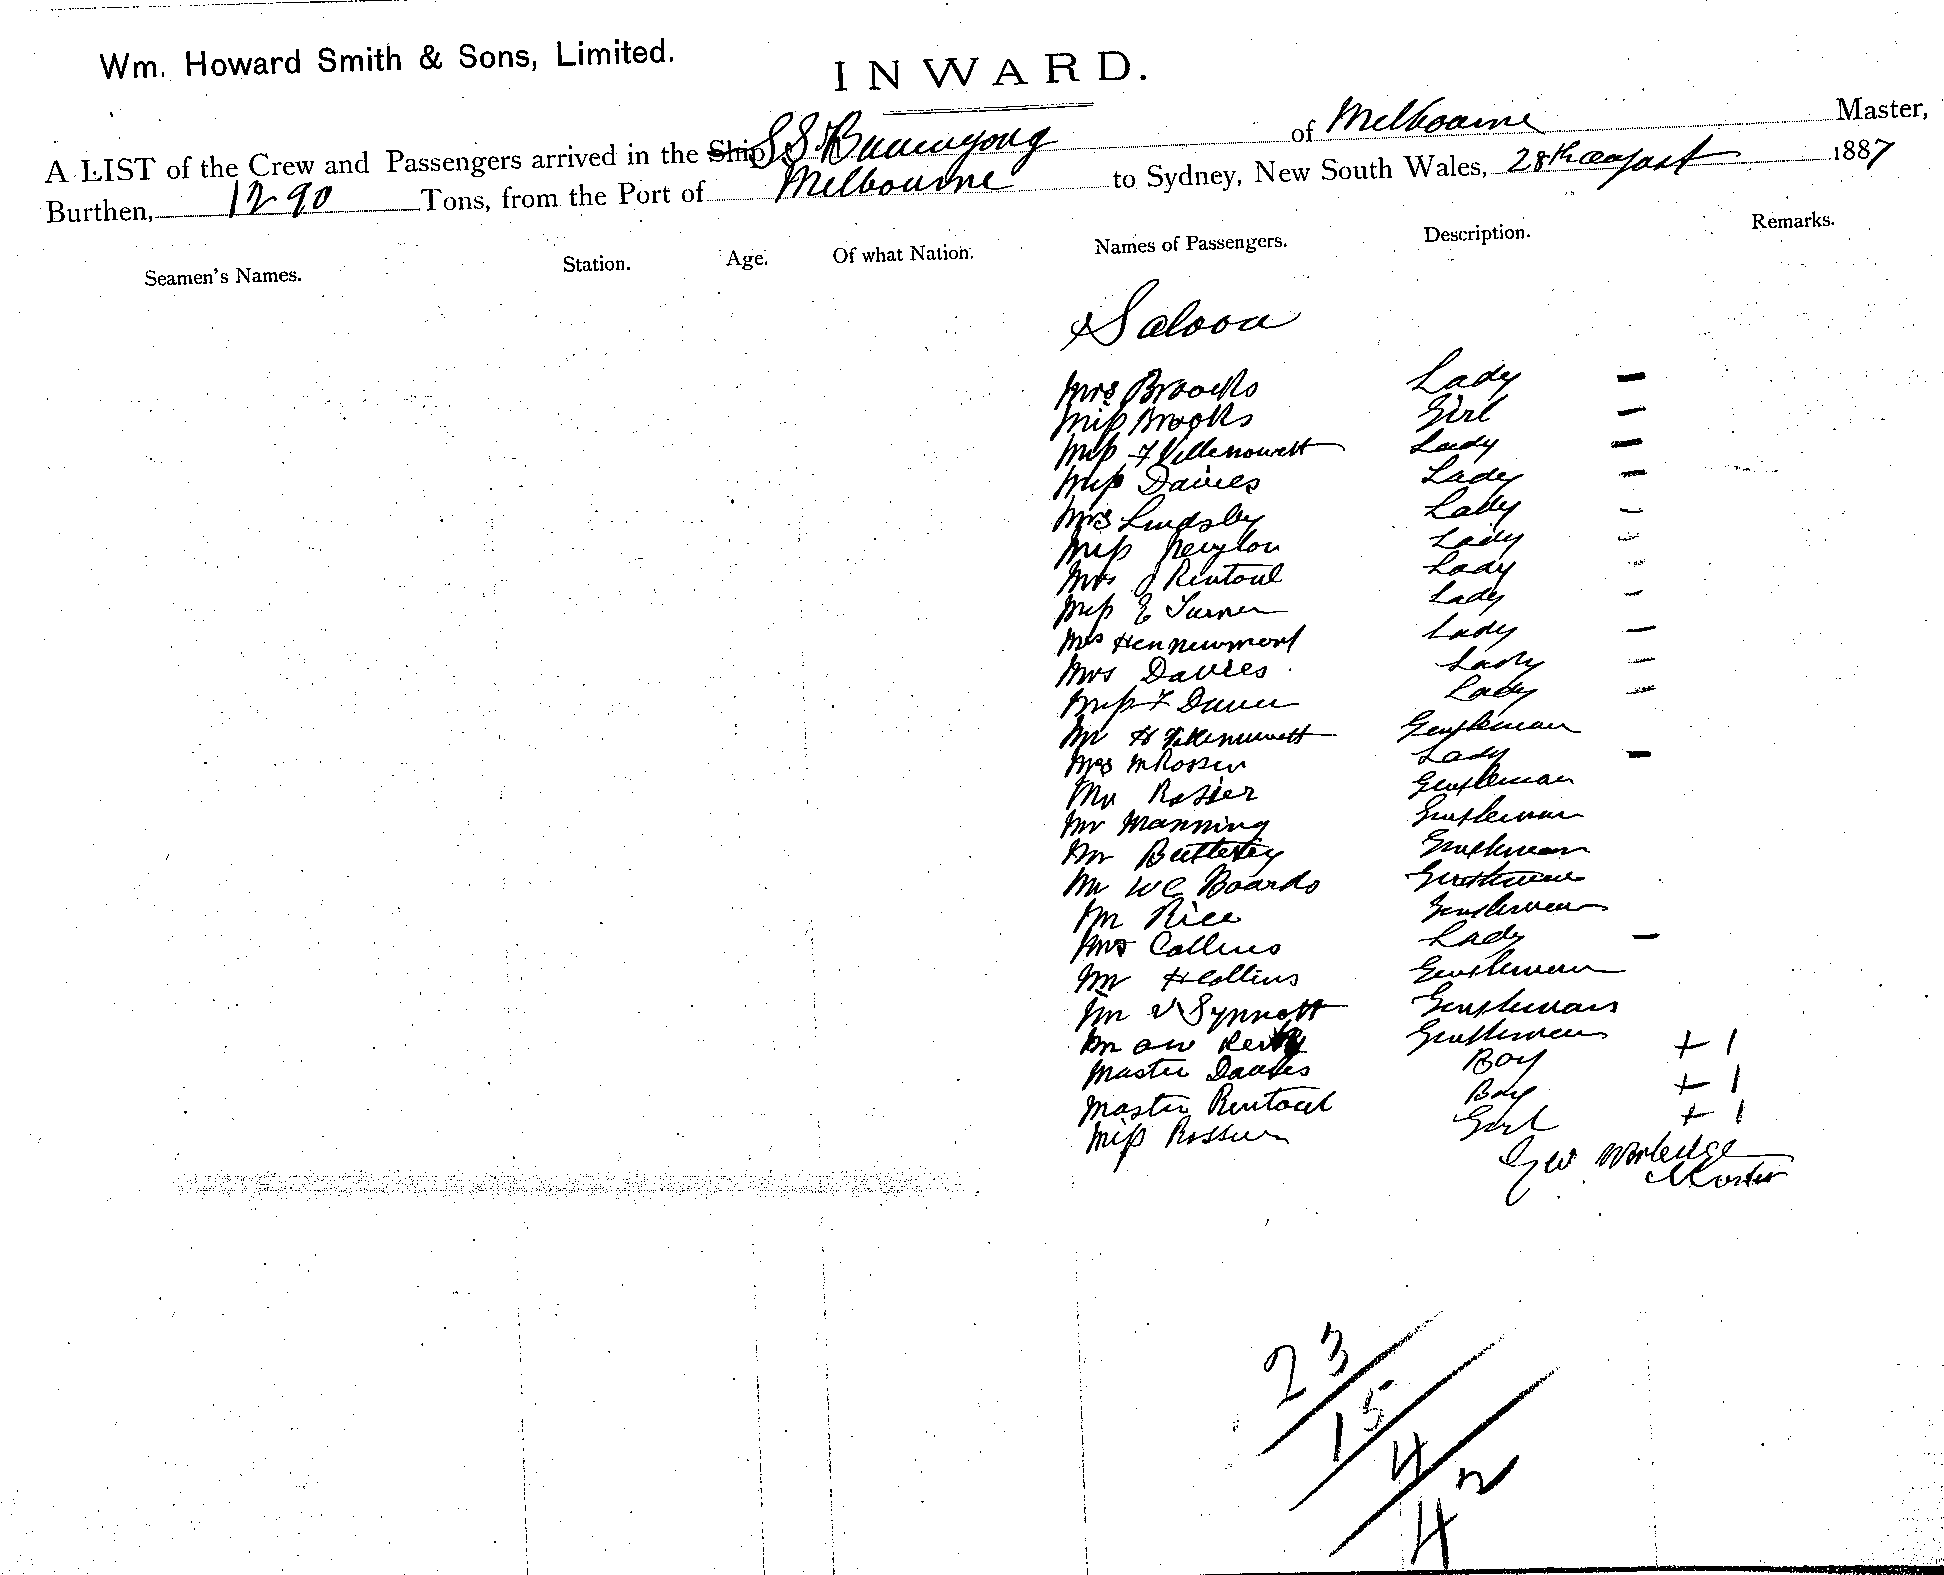 Wm. Howard Smith & Sons, Limited.
INWARD.
A LIST of the Crew and Passengers arrived in the Ship SS Buninyong of Melbourne Master,
Burthen, 1290 Tons, from the Port of Melbourne to Sydney, New South Wales, 28th August 1887
Seamen's Names. Station. Age. Of what Nation. Names of Passengers. Description. Remarks.
Saloon
Mrs Brooks Lady —
Miss Brooks Girl —
Miss F Lady —
Miss Davies Lady —
Mrs Lindsley Lady —
Miss Lady —
Mrs J Rentoul Lady —
Miss E Turner Lady —
Mrs Lady —
Mrs Davies Lady —
Miss F Lady —
Mr H Gentleman
Mrs M Rosser Lady —
Mr Rosser Gentleman
Mr Manning Gentleman
Mr Gentleman
Mr WC Boards Gentleman
Mr Rice Gentleman
Mrs Collins Lady —
Mr H Collins Gentleman
Mr Synnott Gentleman
Mr Gentleman
Master Davies Boy + 1
Master Rentoul Boy + 1
Miss Rosser Girl + 1
GW Worledge
Master
23/
15/
4/2
4